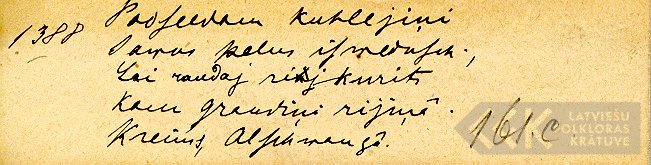 1388
Padseedam kuhlejiņi
Sawas pelus iswedusch.,
Lai raudaj rijkurits
Kam graudiņi rijiņâ.
Kreims, Alschwangâ.
161.c
LATVIEŠU
FOLKLORAS
KRĀTUVE